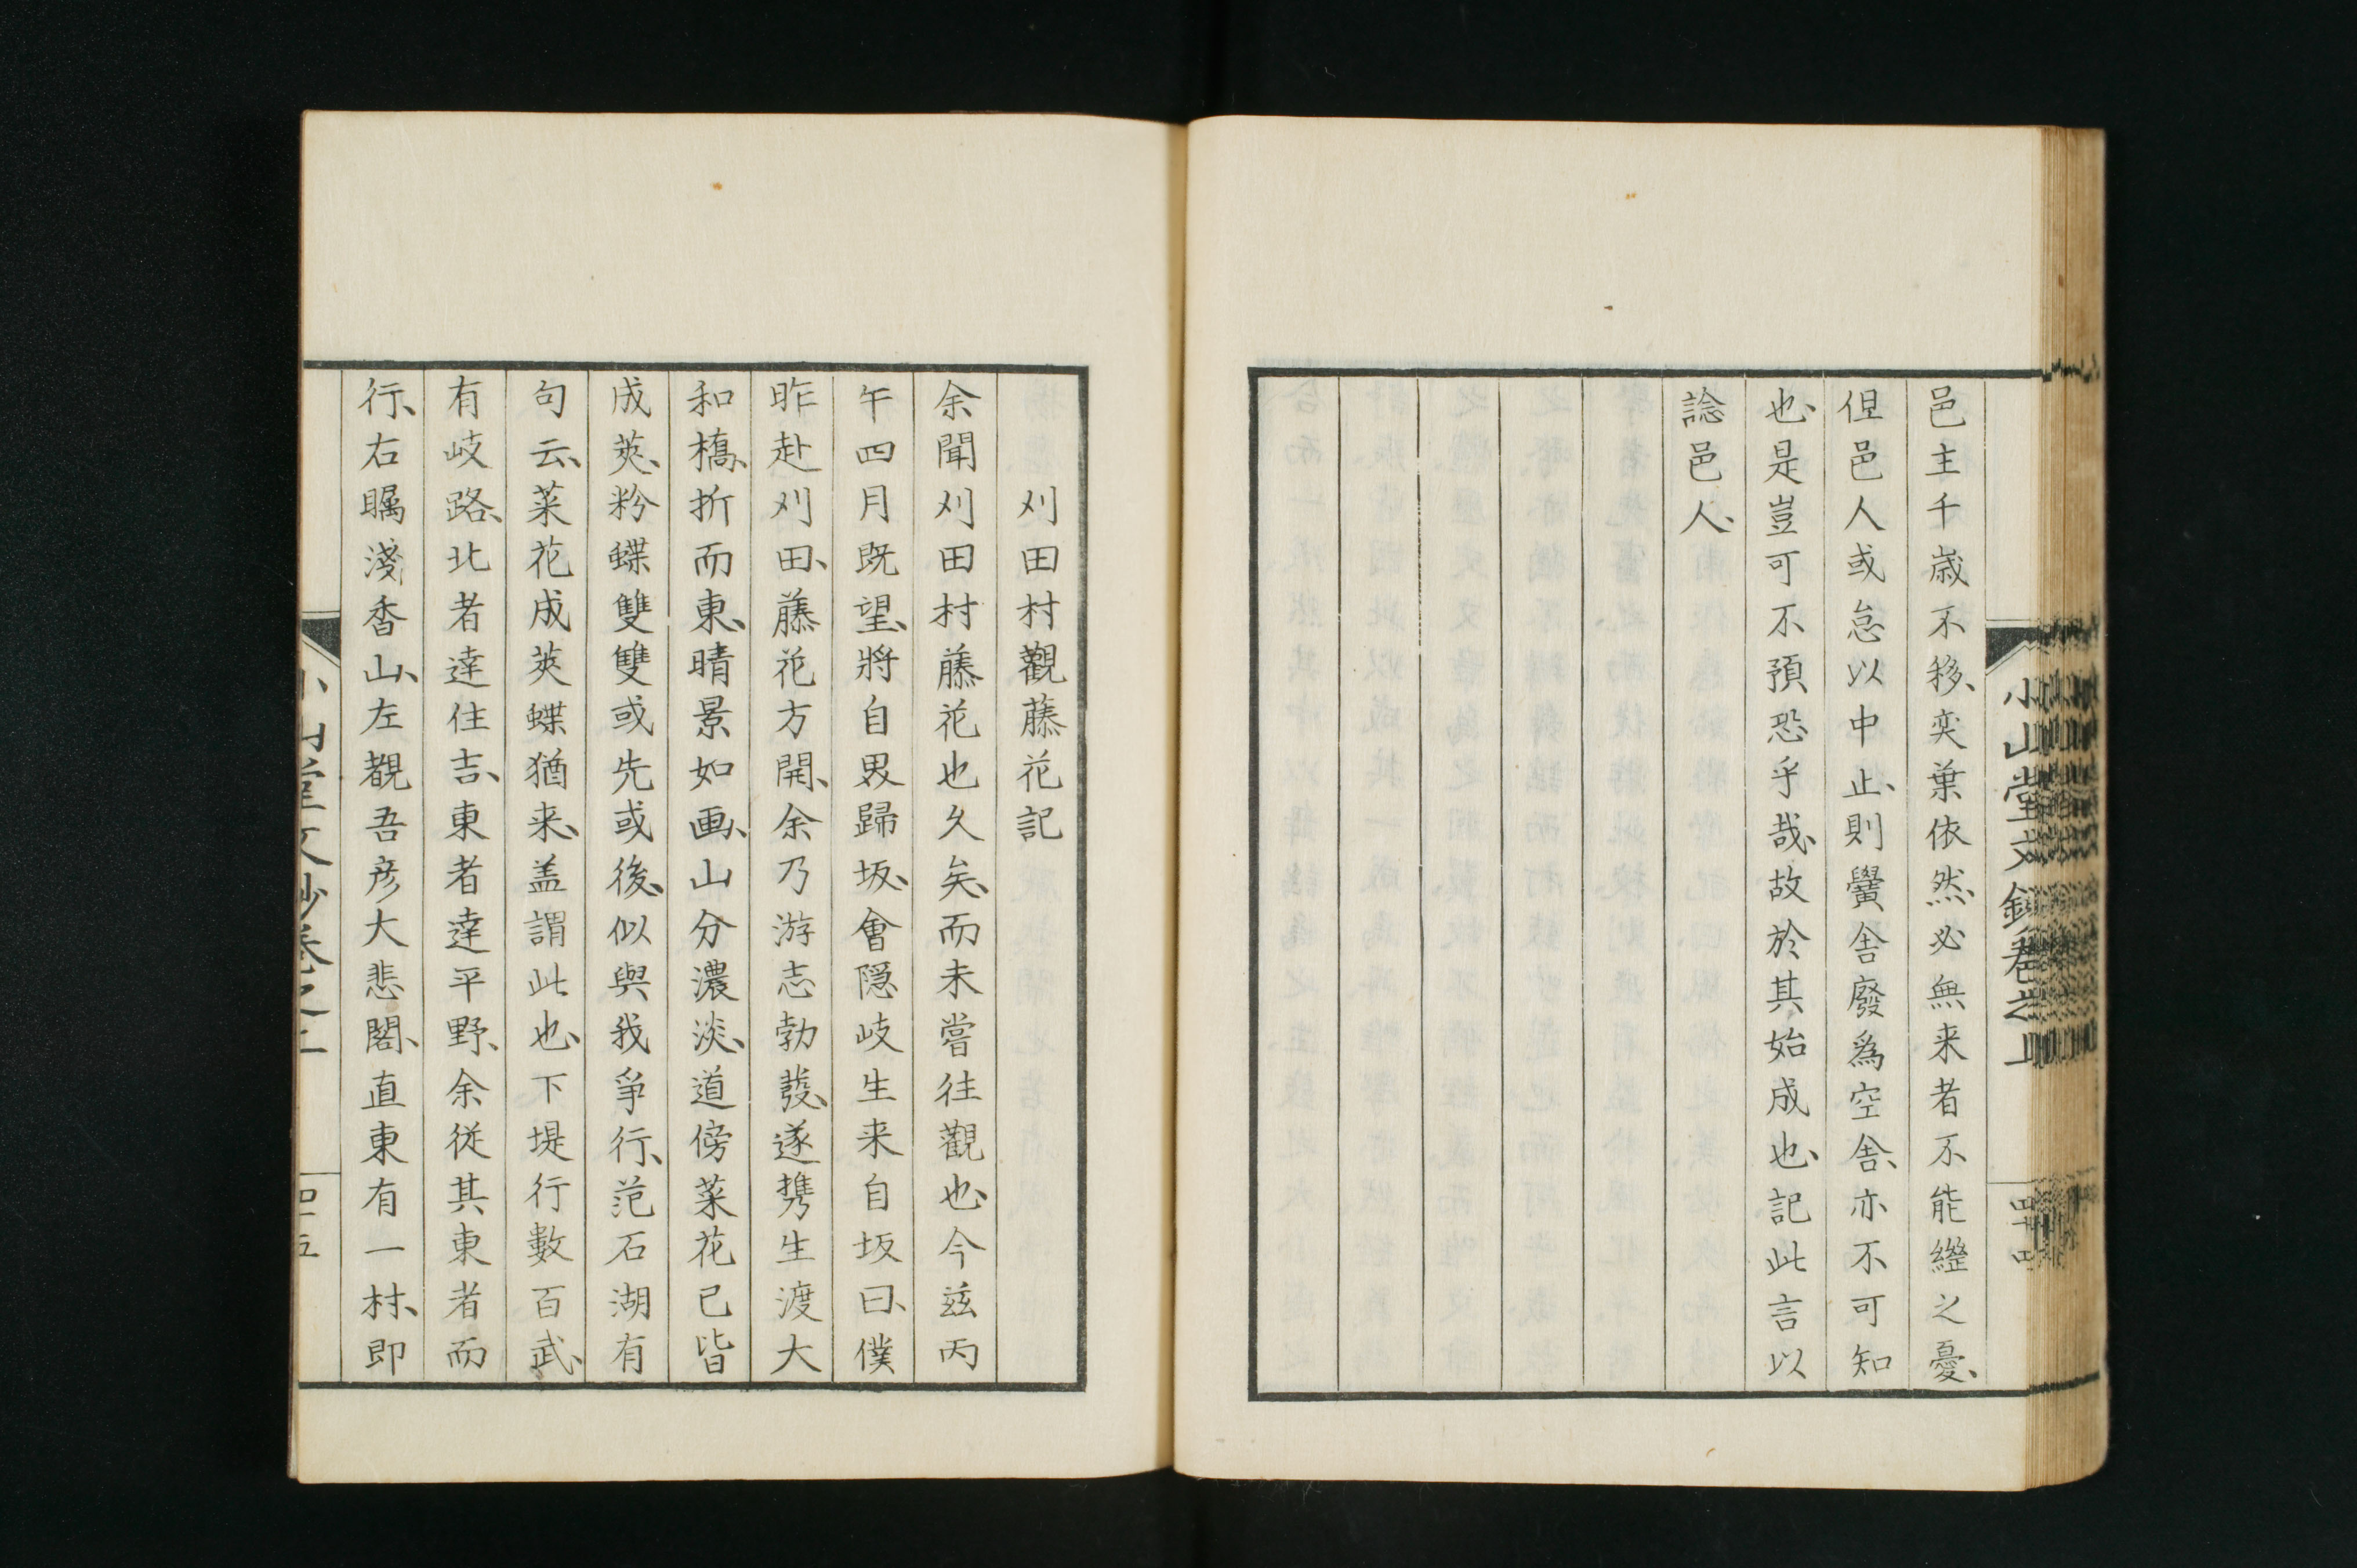 小山堂文鈔卷之上
四十四
邑主千歳不移、奕葉依然、必無来者不能繼之憂、
但邑人或怠以中止、則黌舎廢爲空舎、亦不可知
也、是豈可不預恐乎哉、故於其始成也、記此言以
諗邑人、
刈田村觀藤花記
余聞刈田村藤花也久矣、而未嘗往觀也、今茲丙
午四月既望、將自畀歸坂、會隠岐生来自坂曰、僕
昨赴刈田、藤花方開、余乃游志勃發、遂携生渡大
和橋、折而東、晴景如画、山分濃淡、道傍菜花已皆
成莢、粉蝶雙雙或先或後、似與我爭行、范石湖有
句云、菜花成莢蝶猶来、盖謂此也、下堤行數百武、
有岐路、北者達住吉、東者達平野、余従其東者而
行、右矚淺香山、左覩吾彦大悲閣、直東有一村、即